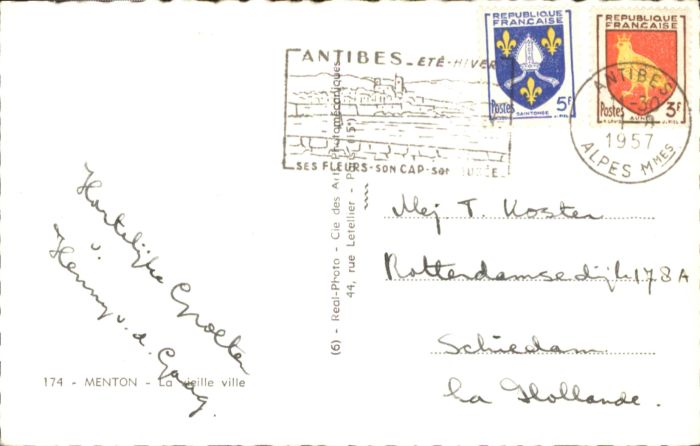 ANTIBES - ÉTÉ-HIVER
SES FLEURS - SON CAP - son
REPUBLIQUE
FRANÇAISE
Postes 5F
SAINTONGE
REPUBLIQUE
FRANÇAISE
Postes 3F
AUNIS
ANTIBES
1957
ALPES MMES
Hartelijke Groeten
v.
Henny v. d. Gaag.
Mej T. Koster
Rotterdamsedijk 178A
Schiedam
La Hollande.
(6) - Real-Photo - Cie des Arts Photomécaniques
44, rue Letellier - (15e)
174 - MENTON - La vieille ville